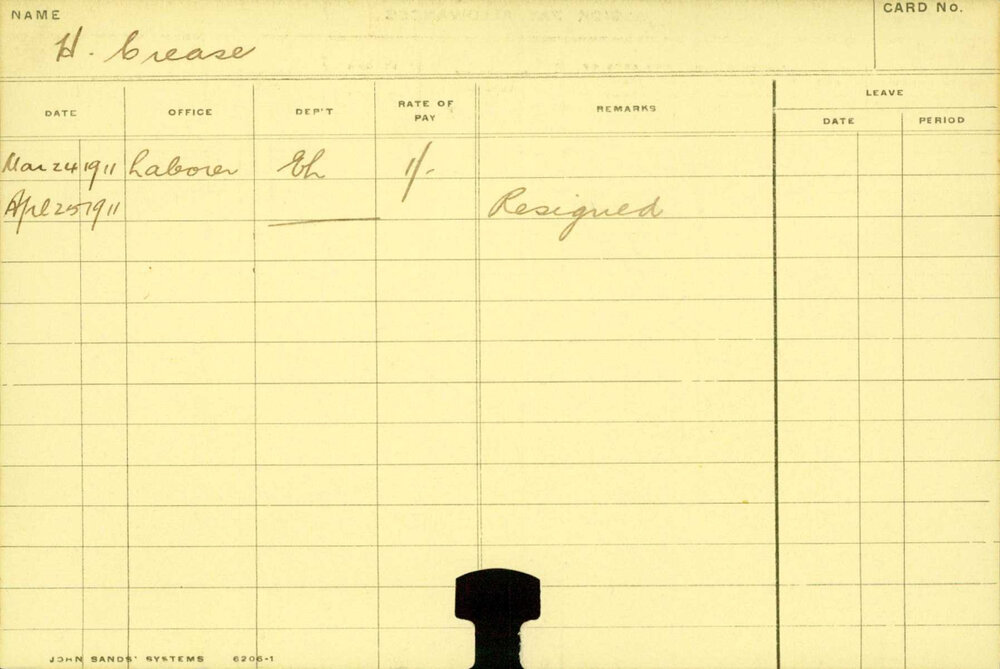 NAME
CARD No.
H. Crease
DATE OFFICE DEP'T RATE OF PAY REMARKS LEAVE
DATE PERIOD
Mar 24 1911 Laborer Eh 1/-
Apl 25 1911 Resigned
JOHN SANDS' SYSTEMS 6206-1